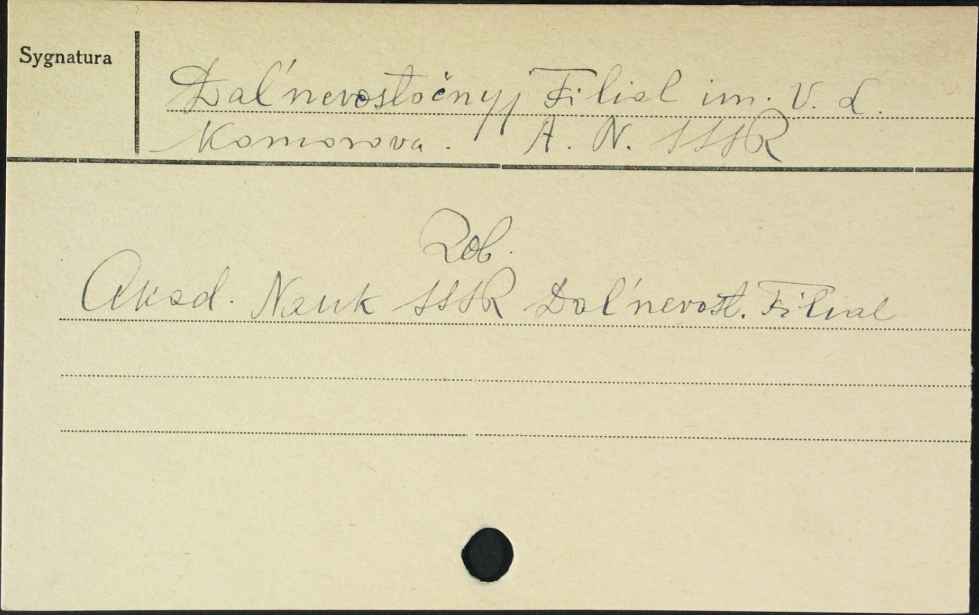 Sygnatura
Dal'nevostočnyj Filial im. V. L.
Komorova. A. N. SSSR
Zob.
Akad. Nauk SSSR Dal'nevost. Filial